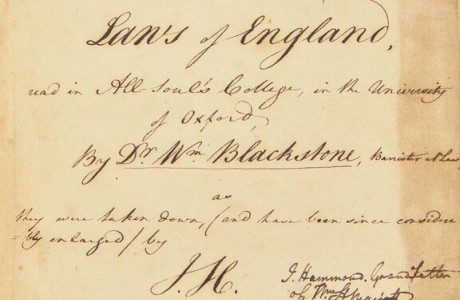 Laws of England,
read in All Soul's College, in the University
of Oxford,
By Dr. Wm. Blackstone, Barrister at Law
as
they were taken down, (and have been since considera
=bly enlarged) by
J. H.
J. Hammond. Grandfather
of Wm. H.